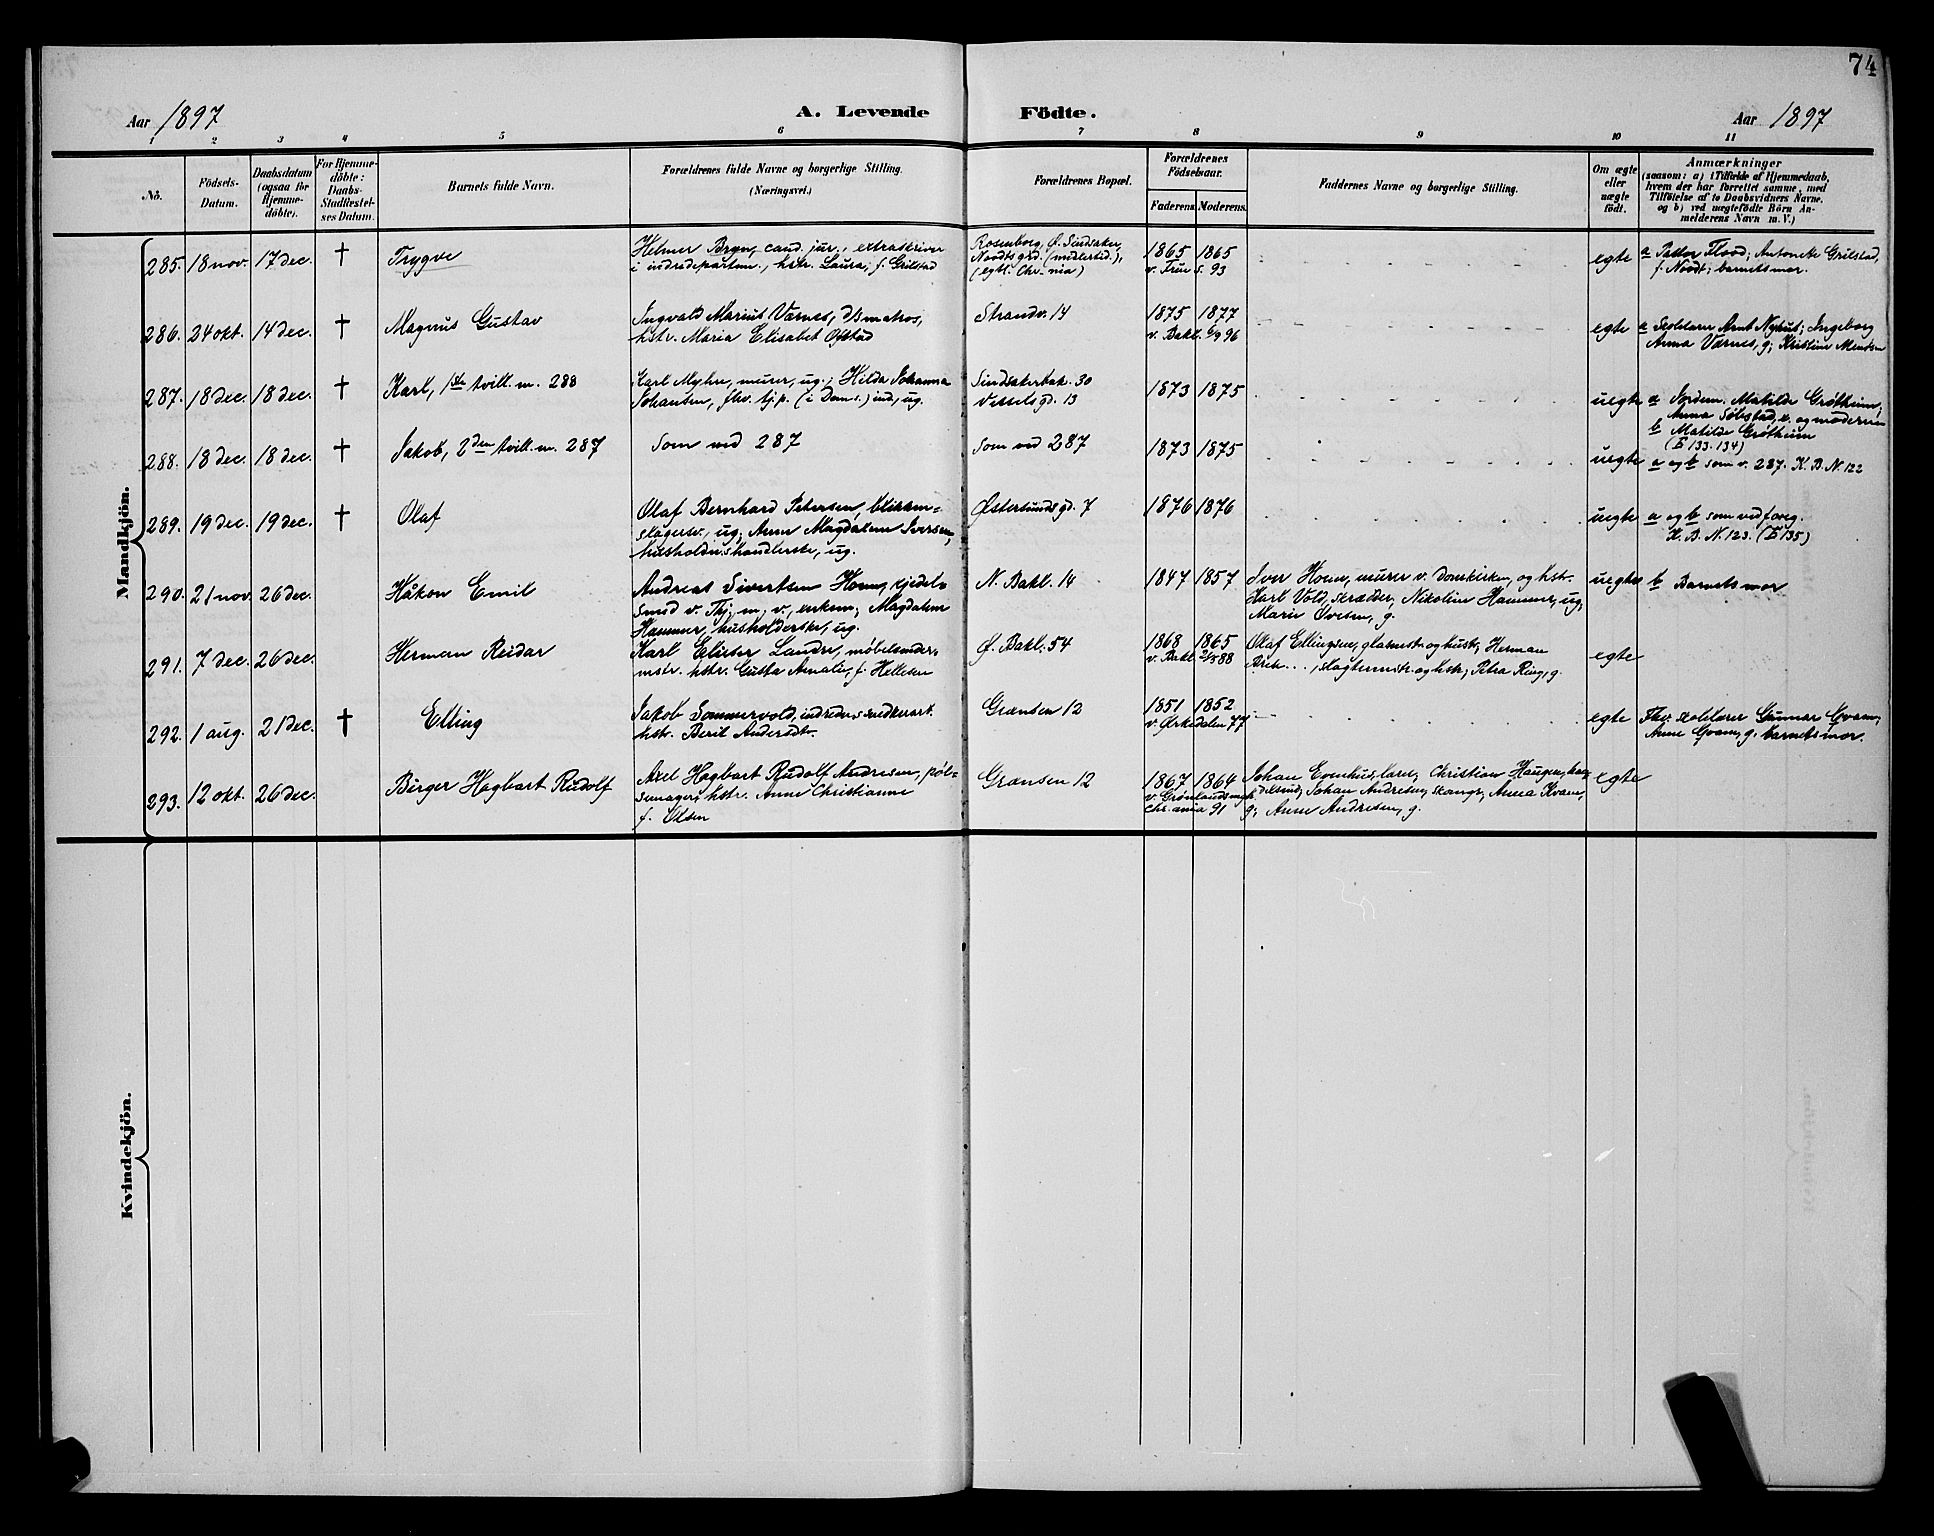 74
Aar 1897
A. Levende Födte.
Aar 1897
1 2 3 4 5 6 7 8 9 10 11
No.
Födsels-Datum.
Daabsdatum (ogsaa for Hjemme-döbte).
For Hjemme-döbte: Daabs-Stadfæstel-ses Datum.
Barnets fulde Navn.
Forældrenes fulde Navne og borgerlige Stilling.
(Næringsvei.)
Forældrenes Bopæl.
Forældrenes Födselsaar.
Faderens. Moderens.
Faddernes Navne og borgerlige Stilling.
Om ægte eller uægte født.
Anmærkninger
(saasom: a) i Tilfælde af Hjemmedaab,
hvem der har forrettet samme, med
Tilföielse af to Daabsvidners Navne,
og b) ved uægtefödte Börn An-
melderens Navn m. V.)
Mandkjön.
285. 18 nov. 17 dec. † Trygve
Helmer Bryn, cand. jur., extraskriver
i indredepartem., hstr. Laura, f. Grilstad
Rosenborg, Ø. Sindsaker,
Noodts grd. (midlertid.),
(egtl. Chr-nia)
1865 1865
v. Frue s. 93
egte
a Pastor Flood; Antonette Grilstad,
f. Noodt; barnets mor.
286. 24 okt. 14 dec. † Magnus Gustav
Ingvald Marius Værnes, DSmatros,
hstr. Maria Elisabet Ofstad
Strandv. 14
1875 1877
v. Bakl. 6/9 96
egte
a Skolelærer Arnt Nyhus; Ingeborg
Anna Værnes, g; Kristine
287. 18 dec. 18 dec. † Karl, 1ste tvill. m. 288
Karl Myhre, murer, ug.; Hilda Johanna
Johansen, fhv. tj.p. (i Doms.) ind, ug.
Sindsakerbak. 30
Vesselsgd. 13
1873 1875
uegte
a Jordem. Matilde Grøtheim,
Anna Sølstad, e. og moderen
b Matilde Grøtheim
(E 133.134)
288. 18 dec. 18 dec. † Jakob, 2den tvill. m. 287
Som ved 287
Som ved 287
1873 1875
uegte
a og b som v. 287. K. B. N. 122
289. 19 dec. 19 dec. † Olaf
Olaf Bernhard Petersen, blikken-
slagersv., ug; Anna Magdalena Iversen,
husholdn.shandlerske, ug.
Østerlundsgd. 7
1876 1876
uegte
a og b som ved foreg.
K. B. N. 123. (E 135)
290. 21 nov. 26 dec. Håkon Emil
Andreas Sivertsen Hoem, kjedel-
smed v. Thj. m. v., enkem; Magdalena
Hammer, husholderske, ug.
N. Bakl. 14
1847 1857
Iver Hoem, murer v. Domkirken, og hstr.
Karl Vold, skrædder, Nikoline Hammer, ug,
Marie Ovesen, g.
uegte
b Barnets mor
291. 7 dec. 26 dec. Herman Reidar
Karl Elieser Landrø, møbelsnedker-
mstr. hstr. Gusta Amalie, f. Hellesen
Ø. Bakl. 54
1868 1865
v. Bakl. 88
Olaf Ellingsen, glasmstr. og hustr; Herman
, slagtermstr. og hstr; Petra Ring, g.
egte
292. 1 aug. 21 dec. † Elling
Jakob Sommervold, indredn.ssnedkerarb.
hstr. Beril Andersdtr.
Grænsen 12
1851 1852
v. Ørkedalen 77
egte
Fhv. skolelærer Gunnar Qvam;
Anne Qvam, g. barnets mor.
293. 12 okt. 26 dec. Birger Hagbart Rudolf
Axel Hagbart Rudolf Andresen, pøl-
semager, hstr. Anne Christianne
f. Olsen
Grænsen 12
1867 1864
v. Grønlandsmgh.
Chr.ania 91
Johan Evenhus, lærer; Christian Haugen, han-
delsmd; Johan Andresen, skomgr; Anna Kvam,
g; Anne Andresen, g.
egte
Kvindekjön.